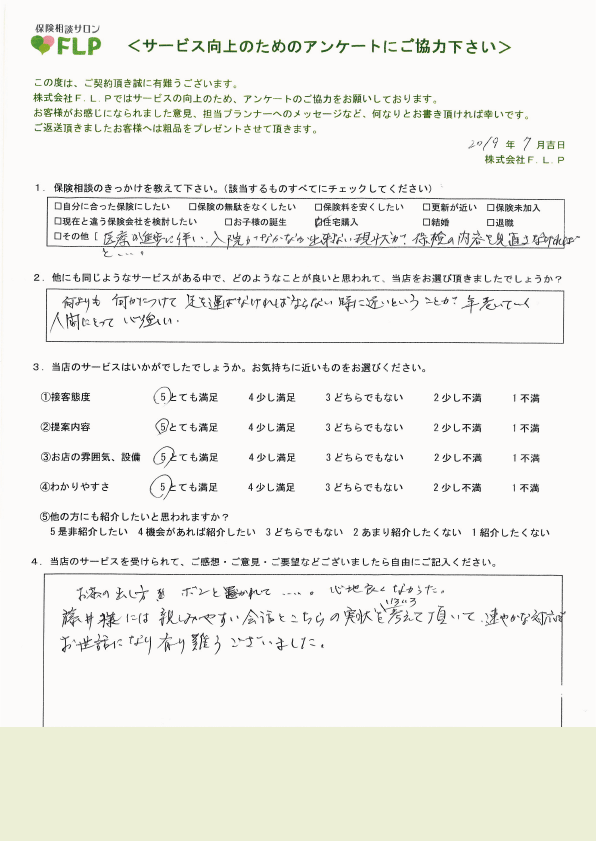 保険相談サロン
FLP
＜サービス向上のためのアンケートにご協力下さい＞
この度は、ご契約頂き誠に有難うございます。
株式会社Ｆ.Ｌ.Ｐではサービスの向上のため、アンケートのご協力をお願いしております。
お客様がお感じになられました意見、担当プランナーへのメッセージなど、何なりとお書き頂ければ幸いです。
ご返送頂きましたお客様へは粗品をプレゼントさせて頂きます。
2019 年 7 月吉日
株式会社Ｆ.Ｌ.Ｐ
１．保険相談のきっかけを教えて下さい。（該当するものすべてにチェックしてください）
□自分に合った保険にしたい □保険の無駄をなくしたい □保険料を安くしたい □更新が近い □保険未加入
□現在と違う保険会社を検討したい □お子様の誕生 □住宅購入 □結婚 □退職
□その他［医療の進歩に伴い、入院がなかなか出来ない現状だが、保険の内容を見直さなければ
と....。
２．他にも同じようなサービスがある中で、どのようなことが良いと思われて、当店をお選び頂きましたでしょうか？
何よりも 何かにつけて 足を運ばなければならない時に近いということが、年老いていく
人間にとって 心強い.
３．当店のサービスはいかがでしたでしょうか。お気持ちに近いものをお選びください。
①接客態度 ５とても満足 ４少し満足 ３どちらでもない ２少し不満 １不満
②提案内容 ５とても満足 ４少し満足 ３どちらでもない ２少し不満 １不満
③お店の雰囲気、設備 ５とても満足 ４少し満足 ３どちらでもない ２少し不満 １不満
④わかりやすさ ５とても満足 ４少し満足 ３どちらでもない ２少し不満 １不満
⑤他の方にも紹介したいと思われますか？
５是非紹介したい ４機会があれば紹介したい ３どちらでもない ２あまり紹介したくない １紹介したくない
４．当店のサービスを受けられて、ご感想・ご意見・ご要望などございましたら自由にご記入ください。
お茶の出し方を ポンと置かれて .....。 心地良くなかった。
藤井様には 親しみやすい会話とこちらの実状をいろいろ考えて頂いて、速やかな対応で
お世話になり有り難うございました。